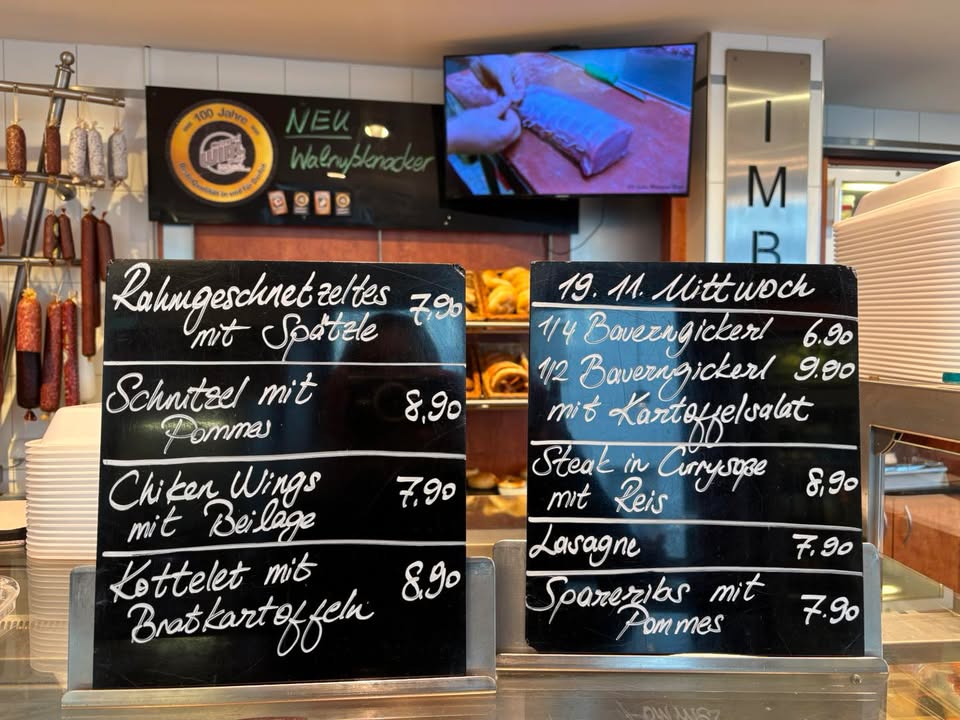 100 Jahre
NEU
Walnußknacker
I
M
B
Rahmgeschnetzeltes 7,90
mit Spätzle
Schnitzel mit 8,90
Pommes
Chiken Wings 7,90
mit Beilage
Kottelet mit 8,90
Bratkartoffeln
19. 11. Mittwoch
1/4 Bauerngickerl 6.90
1/2 Bauerngickerl 9.90
mit Kartoffelsalat
Steak in Currysoße 8,90
mit Reis
Lasagne 7.90
Spareribs mit 7.90
Pommes